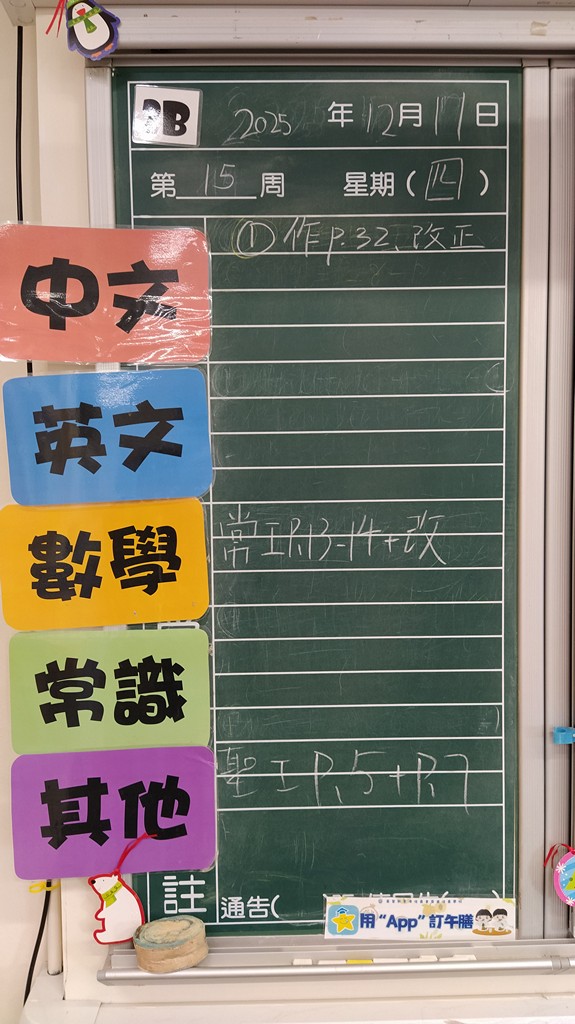 2025 年 12 月 17 日
第 15 周 星期 ( 四 )
① 作 p.32、改正
中文
英文
常工P.13-14+改
數學
常識
聖工 P.5+P.7
其他
註
通告(
用“App”訂午膳